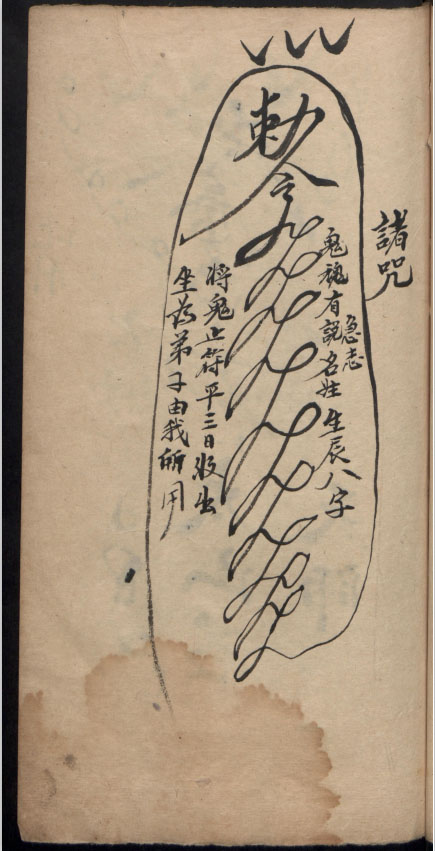 諸咒
勅令
鬼魂有說名姓生辰八字
急志
將鬼止符平三日收出
坐為弟子由我所用